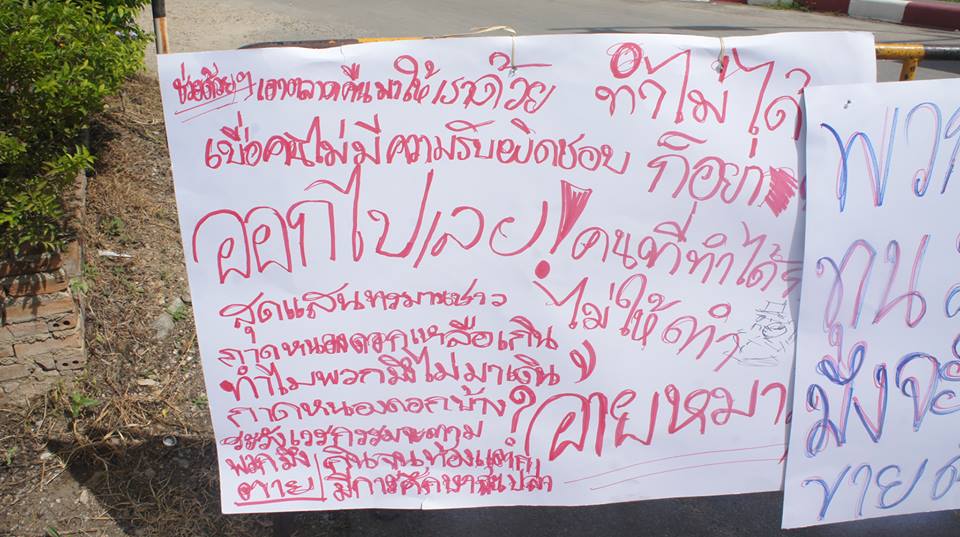 ช่วยด้วยๆ เอาตลาดคืนมาให้เราด้วย
เบื่อคนไม่มีความรับผิดชอบ
ออกไปเลย!
ทำไม่ได้
ก็อย่า
คนที่ทำได้
ไม่ให้ทำ
สุดแสนทรมานชาว
กาดหนองดอกเหลือเกิน
ทำไมพวกมึงไม่มาเดิน
กาดหนองดอกบ้าง?
ระวังเวรกรรมจะตาม
พวกมึง กินจนท้องแตก
ตาย มีการศึกษาซะเปล่า
อายหมา
พวก
ทุน
มึงจะ
ขาย